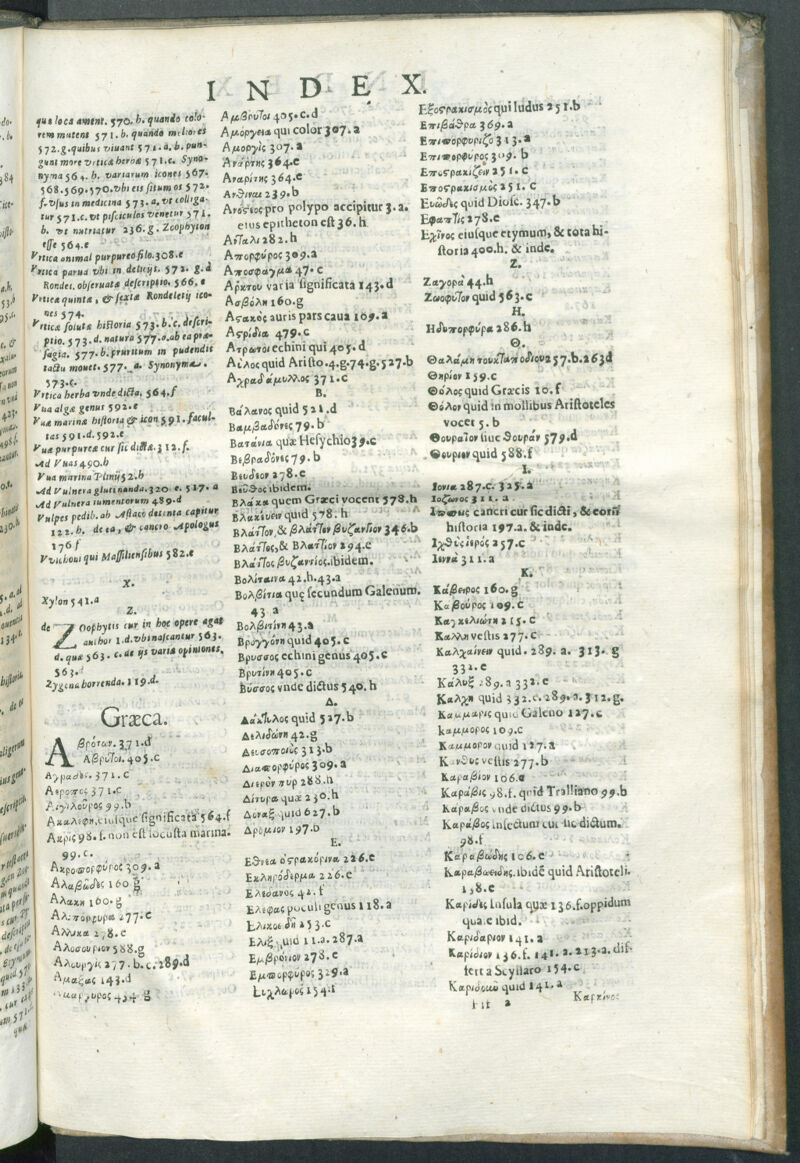 INDEX.
que loca ament. 570. b. quando colo-
rem mutent 571. b. quando meliores
572. g. quibus viuant 571. a. b. pun-
gunt more vrtica herba 571. c. Syno-
nyma 564. b. variarum icones 567.
568. 569. 570. vbi eis situm os 572.
f. vsus in medicina 573. a. vt colliga-
tur 571. c. vt pisciculos venetur 571.
b. vt nutriatur 236. g. Zoophyton
esse 564. e
Vrtica animal purpureo filo. 308. e
Vrtica parua vbi in delicijs. 572. g. d
Rondel. obseruata descriptio. 566. e
Vrticæ quinta, & sexta Rondeletij ico-
nes 574.
Vrticæ solutæ historia 573. b. c. descri-
ptio. 573. d. natura 577. a. ab ea præ-
sagia. 577. b. pruritum in pudendis
tactu mouet. 577. a. Synonyma.
573. c.
Vrtica herba vnde dicta, 564. f
Vua algæ genus 592. e
Vuæ marinæ historia & icon 591. facul-
tas 591. d. 592. e
Vuæ purpureæ cur sic dictæ. 312. f.
Ad Vuas 490. b
Vua marina Plinij 52. b
Ad Vulnera glutinanda. 320. e. 517. a
Ad Vulnera iumentorum 489. d
Vulpes pedib. ab Astaco detenta capitur
122. b. de ea, & cancro Apologus
176 f
Vuichoni qui Massiliensibus 582. e
X.
Xylon 541. a
Z.
de ZOophytis cur in hoc opere agat
author 1. d. vbi nascantur 563.
d. quæ 563. c. de ijs variæ opiniones,
563.
Zygena horrenda. 119. d.
Græca.
Αβρότων. 371. d
Αβρυτοι. 405. c
371. c
Αεροπος 371. c
Αιγιλουρος 99. b
Ακαλεφη, eiusque significata 564. f
Ακρις 98. f. non est locusta marina.
99. c.
Ακροπορφύρος 309. a
Αλαβώδες 160 g
Αλακη 160. g
Αλιπορφυρα 277. c
278. c
Αλοσουριον 588. g
Αλουργὶς 277. b. c. 289. d
Αμαξας 143. d
434 g
Αμβρυτοι 405. c. d
Αμόργεια qui color 307. a
Αμοργὶς 307. a
Ανάρτης 364. e
Αναρίτης 364. e
Ανθιναι 239. b
Ανόστεος pro polypo accipitur 3. a.
eius epitheton est 36. h
Ανταλι 282. h
Απορφύρος 309. a
Αποσφαγμα 47. c
Αρκτου varia significata 143. d
Ασβόλη 160. g
Αστακὸς auris pars caua 109. a
Αστρίδια 479. c
Ατρωτοι echini qui 405. d
Αὐλος quid Aristo. 4. g. 74. g. 527. b
Αχραδάμυλλος 371. c
B.
Βάλανος quid 521. d
Βαμβαδόνες 79. b
Βατάνια quæ Hesychio 39. c
Βεβραδόνες 79. b
Βευδεον 278. e
Βεῦθος ibidem.
Βλάκα quem Græci vocent 578. h
Βλακεύειν quid 578. h
Βλάττον, & βλάττον βυζαντίον 346. b
Βλάττος, & Βλαττίον 294. c
Βλάττος βυζαντιος. ibidem.
Βολίταινα 42. h. 43. a
Βολβίτια quę secundum Galenum.
43 a
Βολβιτίνη 43. a
Βρυγγόνη quid 405. c
Βρυσσος echini genus 405. c
Βρυτίνη 405. c
Βύσσος vnde dictus 540. h
Δ.
Δάκτυλος quid 527. b
Δελιδώνη 42. g
Δευσοποιὸς 313. b
Διαπορφύρος 309. a
Διερὸν πυρ 288. h
Δίνυρα quæ 230. h
Δοναξ quid 627. b
Δρομιον 197. b
E.
Εθνεα οστρακόρινα 226. e
Εκληρόδερμα 226. e
Ελεδανος 42. f
Ελεφας poculi genus 118. a
Ελικοειδῆ 253. c
Ελιξ quid 11. a. 287. a
Εμβρότιον 278. e
Εμπορφύρος 309. a
154. f
Εξοστρακισμὸς qui ludus 251. b
Επιβάθρα 369. a
Επιπορφυρίζω 313. a
Επιπορφύρος 309. b
Εποστρακίζειν 251. c
Εποστρακισμὸς 251. c
Ευώδης quid Diosc. 347. b
Εφαπτὶς 278. e
Εχῖνος eiusque etymum, & tota hi-
storia 400. h. & inde.
Z.
Ζαγορὰ 44. h
Ζωοφυτον quid 563. c
H.
Ηδυπορφύρα 286. h
Θ.
Θαλάμη τοῦ ὀκτάποδιου 257. b. 263 d
Θηρίον 159. c
Θόλος quid Græcis 10. f
Θόλον quid in mollibus Aristoteles
vocet 5. b
Θουραῖον siue Θουράν 579. d
Θουριον quid 588. f
I.
Ιονια 287. c. 325. a
Ιοζωνος 311. a
Ιππεῖς cancri cur sic dicti, & eorũ
historia 197. a. & inde.
Ιχθὺς ἱερὸς 257. c
311. a
K.
Κάβειρος 160. g
Καβούρος 109. c
Καγχελιώτη 215. c
Καλλη vestis 277. c
Καλχαίνειν quid. 289. a. 313. g
332. e
Κάλυξ 289. a 332. e
Καλχη quid 332. c. 289. a. 312. g.
Καμμαρις quid Galeno 127. c
καμμορος 109. c
Καμμορον quid 127. a
vestis 277. b
Καραβιον 106. e
Καράβις 98. f. quid Tralliano 99. b
Καραβος vnde dictus 99. b
Καράβος insectum cur sic dictum.
98. f
Καραβώδης 106. e
Καραβωειδης. ibidẽ quid Aristoteli.
158. e
Καριδες Insula quæ 136. f. oppidum
quæ e ibid.
Καριδαριον 141. a
Καρίδιον 136. f. 141. a. 213. a. dif-
fert a Scyllaro 154. c
Καριδοκῶ quid 141. a
a
Καρκίνος